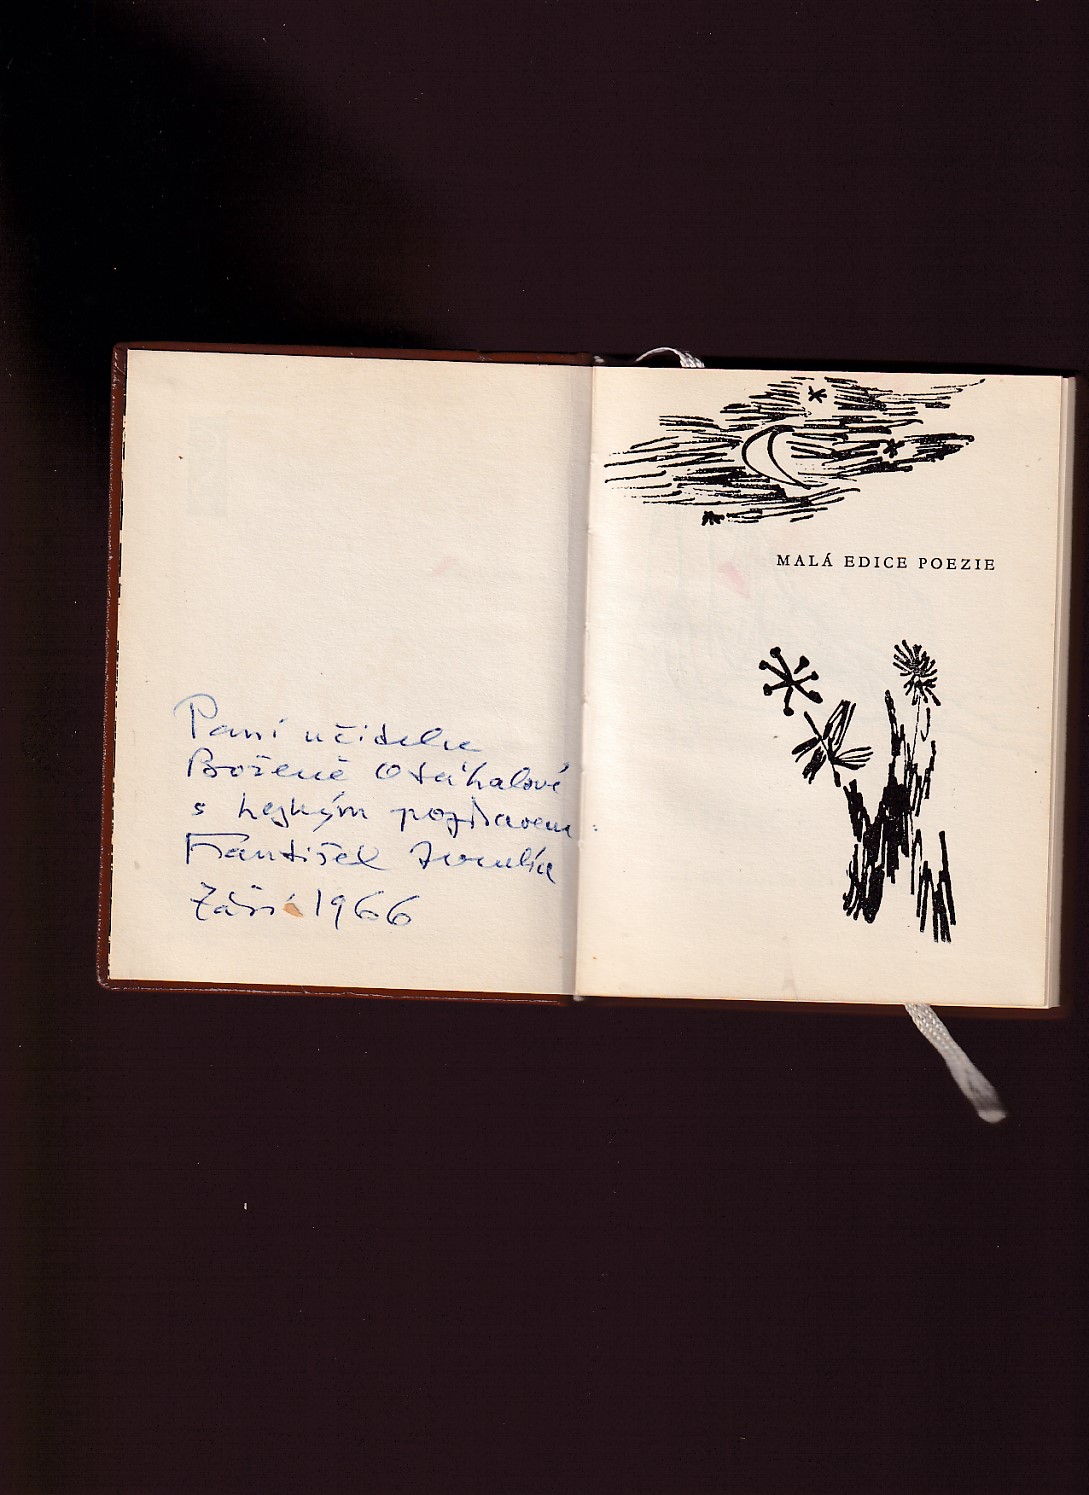 Paní učitelce
Boženě Otáhalové
s hezkým pozdravem
František Hrubín
Září 1966
MALÁ EDICE POEZIE